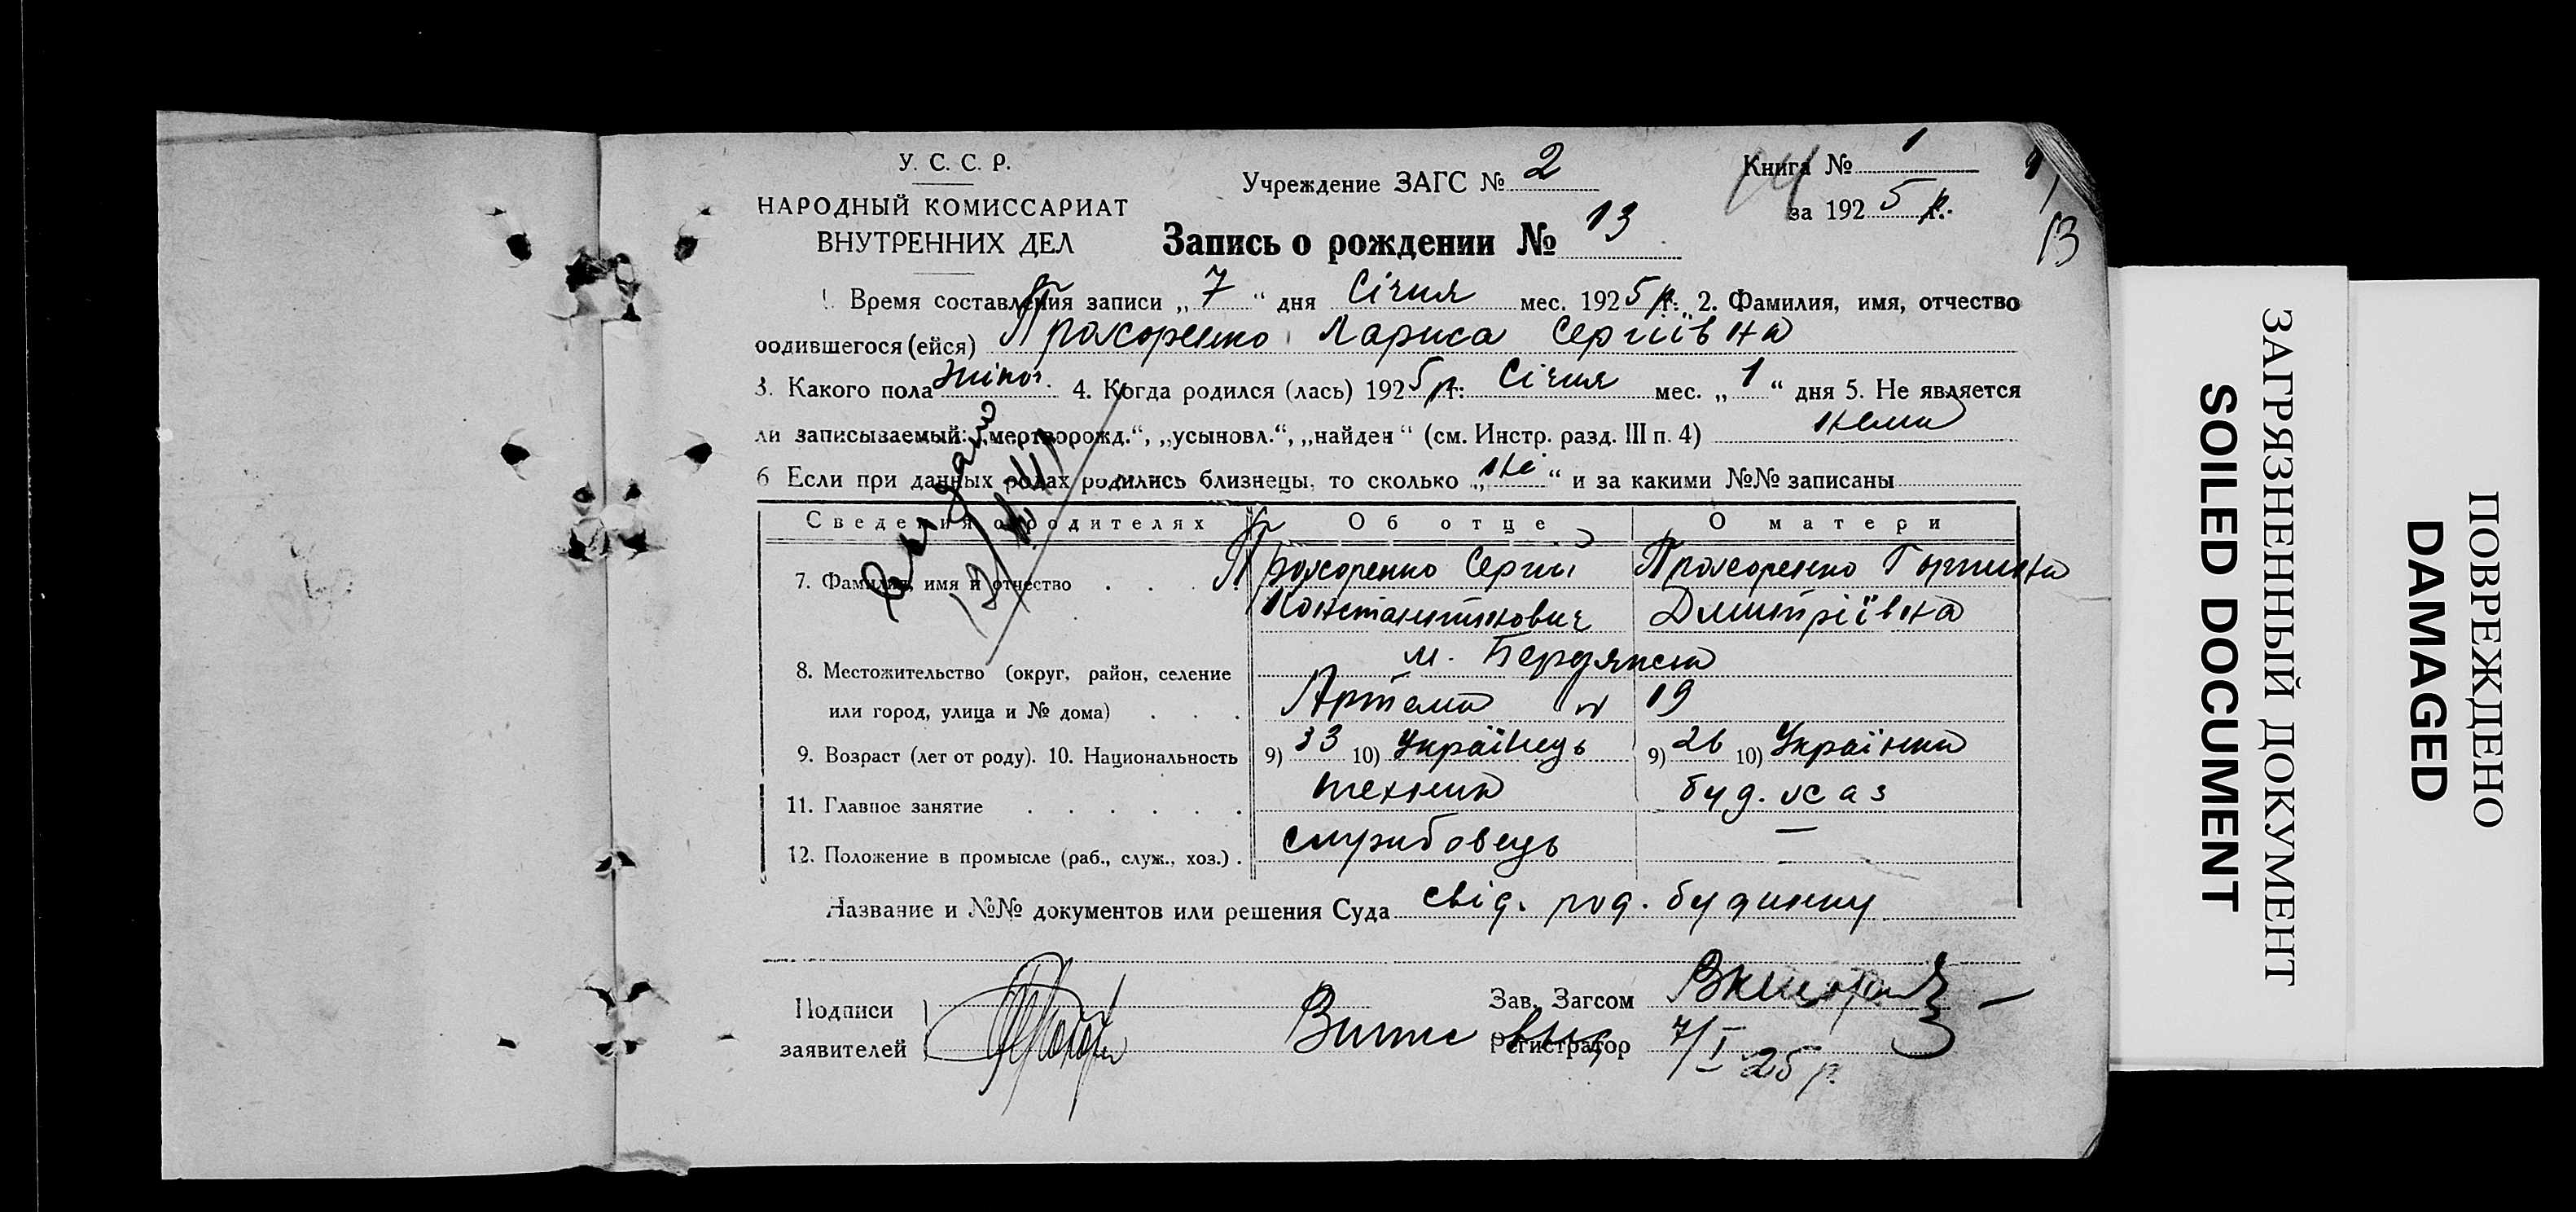 У. С. С. Р.
НАРОДНЫЙ КОМИССАРИАТ
ВНУТРЕННИХ ДЕЛ
Учреждение ЗАГС № 2
Книга № 1
за 192 5 р.
Запись о рождении № 13
13
1. Время составления записи „ 7 “ дня Січня мес. 192 5 р. 2. Фамилия, имя, отчество
родившегося (ейся) Прохоренко Лариса Сергіівна
3. Какого пола жіноч. 4. Когда родился (лась) 192 5 р. Січня мес. „ 1 “ дня 5. Не является
ли записываемый: „мертворожд.“, „усыновл.“, „найден“ (см. Инстр. разд. III п. 4) нема
6 Если при данных родах родились близнецы, то сколько „ ні “ и за какими №№ записаны
Сведения о родителях Об отце О матери
7. Фамилия, имя и отчество . . . Прохоренко Сергій Прохоренко
Константинович Дмитріївна
8. Местожительство (округ, район, селение м. Бердянськ
или город, улица и № дома) . . . Артема № 19
9. Возраст (лет от роду). 10. Национальность 9) 33 10) Українець 9) 26 10) Українка
11. Главное занятие . . . . . . технік
12. Положение в промысле (раб., служ., хоз.) . службовець —
Название и №№ документов или решения Суда свід. род. будинку
Подписи
заявителей
Зав. Загсом
Регистратор 7/I 25 р.
ЗАГРЯЗНЕННЫЙ ДОКУМЕНТ
SOILED DOCUMENT
ПОВРЕЖДЕНО
DAMAGED